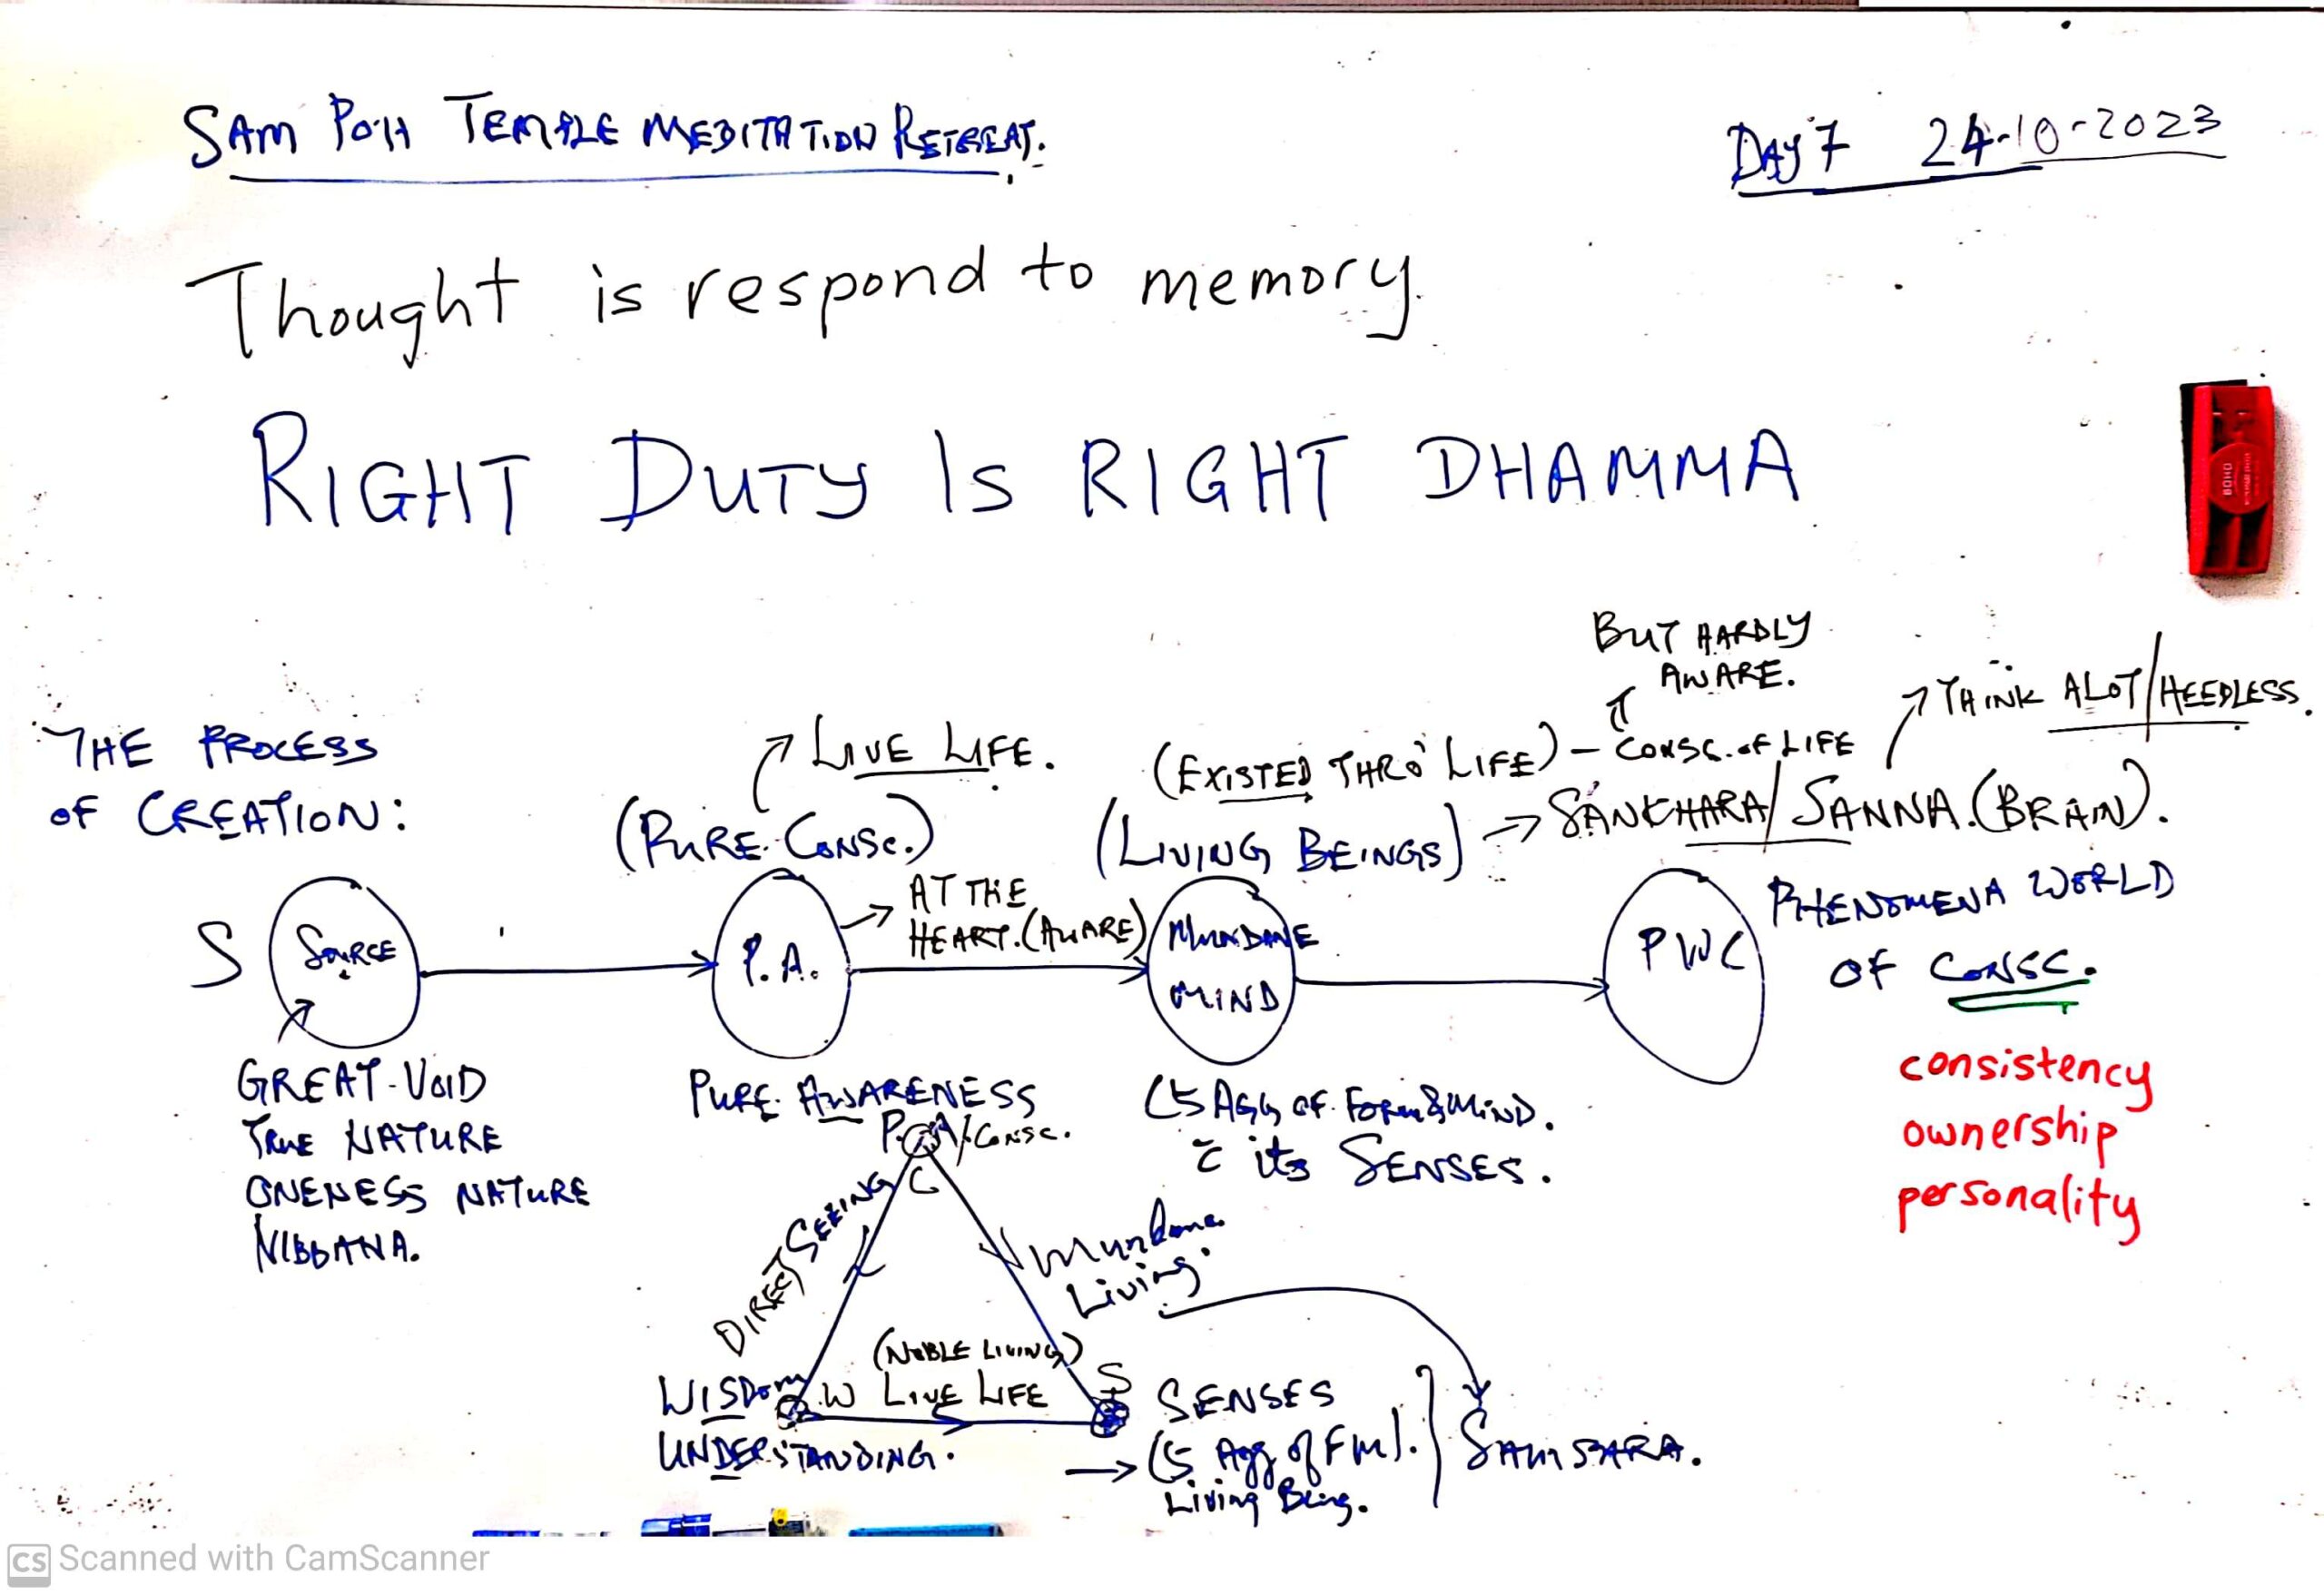 SAM POH TEMPLE MEDITATION RETREAT.
DAY 7 24-10-2023
Thought is respond to memory.
RIGHT DUTY IS RIGHT DHAMMA
BUT HARDLY
AWARE.
THINK ALOT/HEEDLESS.
THE PROCESS
OF CREATION:
LIVE LIFE.
(EXISTED THRO' LIFE) – CONSC. OF LIFE
(PURE CONSC.)
(LIVING BEINGS) → SANKHARA/SANNA.(BRAIN).
S SOURCE
P.A.
→ AT THE
HEART.(AWARE)
MUNDANE
MIND
PWC
PHENOMENA WORLD
OF CONSC.
GREAT-VOID
TRUE NATURE
ONENESS NATURE
NIBBANA.
PURE AWARENESS
(5 AGG OF FORM & MIND.
c̄ its SENSES.
consistency
ownership
personality
P.A/CONSC.
C
DIRECT SEEING
Mundane
Living.
(NOBLE LIVING)
WISDOM W LIVE LIFE S
UNDERSTANDING.
SENSES
→ (5 Agg of FM).
Living Being.
SAMSARA.
BOHO
CS Scanned with CamScanner